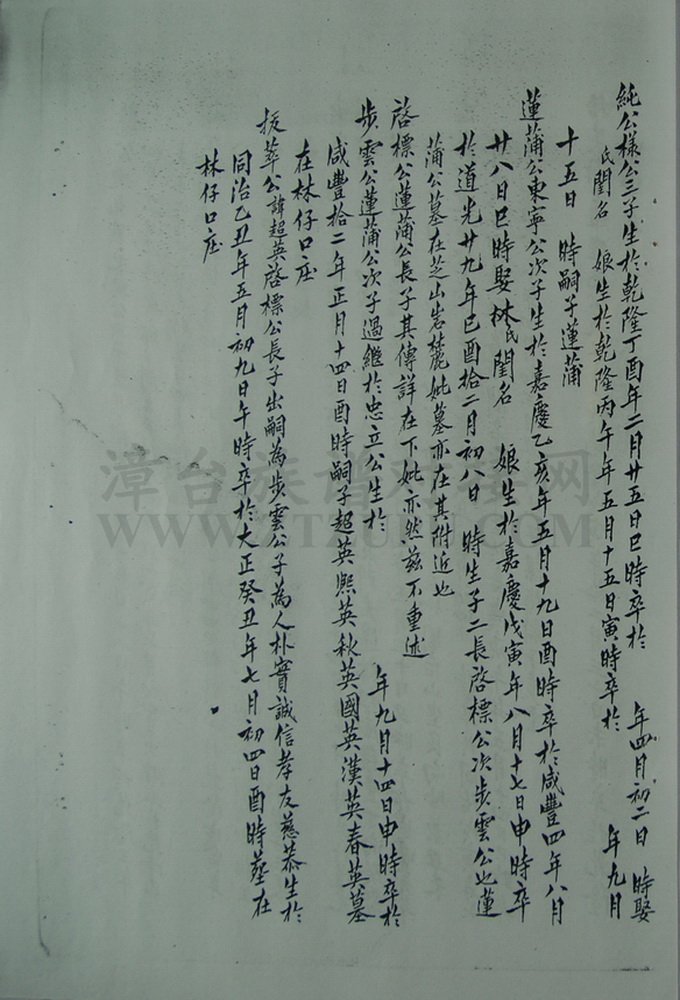 純公樣公三子生於乾隆丁酉年二月廿五日巳時卒於 年四月初二日 時娶
氏閨名 娘生於乾隆丙午年五月十五日寅時卒於 年九月
十五日 時嗣子蓮蒲
蓮蒲公東寧公次子生於嘉慶乙亥年五月十九日酉時卒於咸豐四年八月
廿八日巳時娶林氏閨名 娘生於嘉慶戊寅年八月十七日申時卒
於道光廿九年己酉拾二月初八日 時生子二長啓標公次步雲公也蓮
蒲公墓在芝山岩麓妣墓亦在其附近也
啓標公蓮蒲公長子其傳詳在下妣亦然茲不重述
步雲公蓮蒲公次子過繼於忠立公生於 年九月十四日申時卒於
咸豐拾二年正月十四日酉時嗣子超英熙英秋英國英漢英春英墓
在林仔口庄
拔萃公諱超英啓標公長子出嗣為步雲公子為人朴實誠信孝友慈恭生於
同治乙丑年五月初九日午時卒於大正癸丑年七月初四日酉時葬在
林仔口庄
漳台族谱对接网
WWW.ZTZUPU.COM